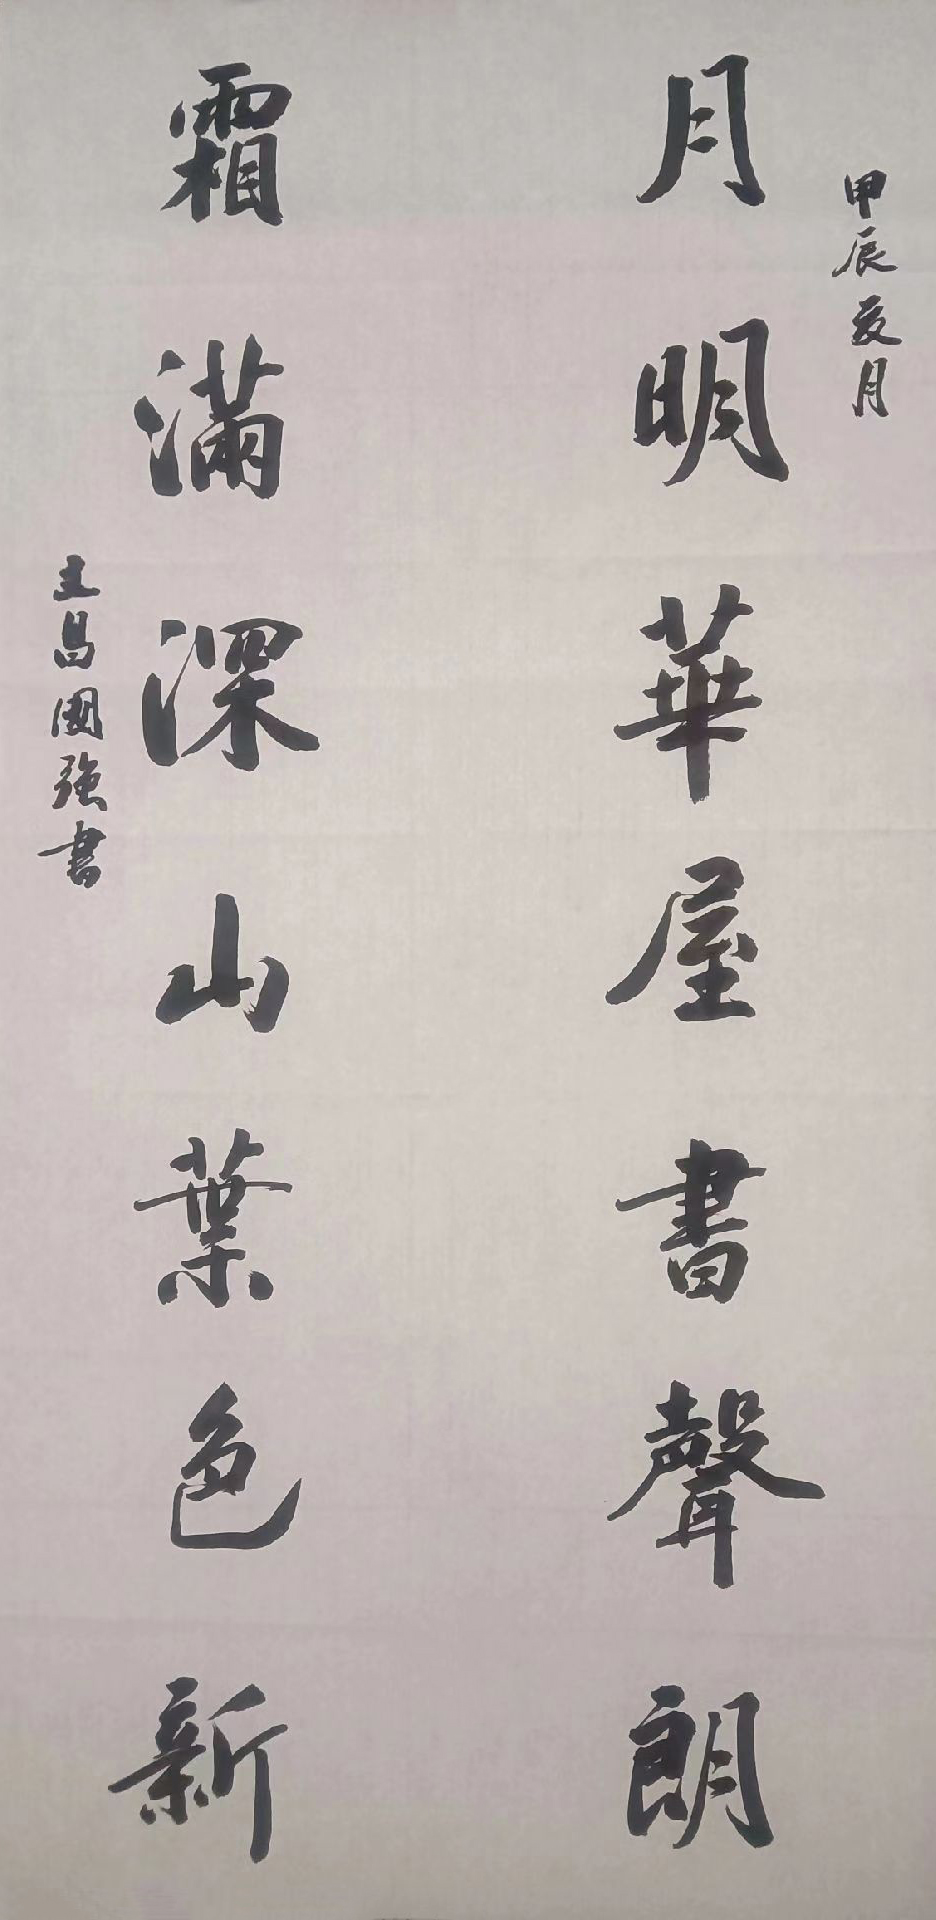 甲辰夏月
月明華屋書聲朗
霜滿深山葉色新
文昌國強書